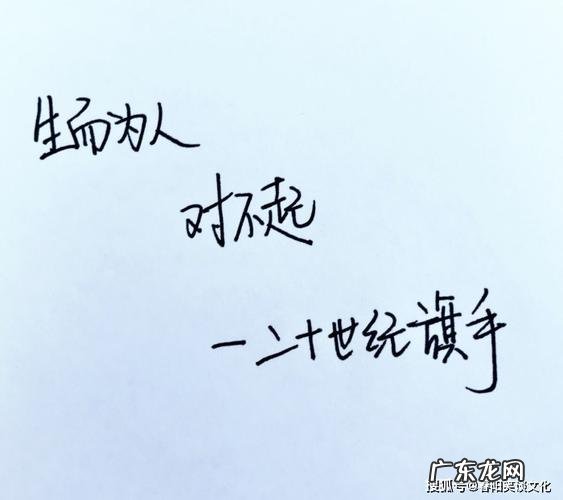 生而为人
对不起
一二十世纪旗手
广东龙网
搜狐号@春阳笑谈文化